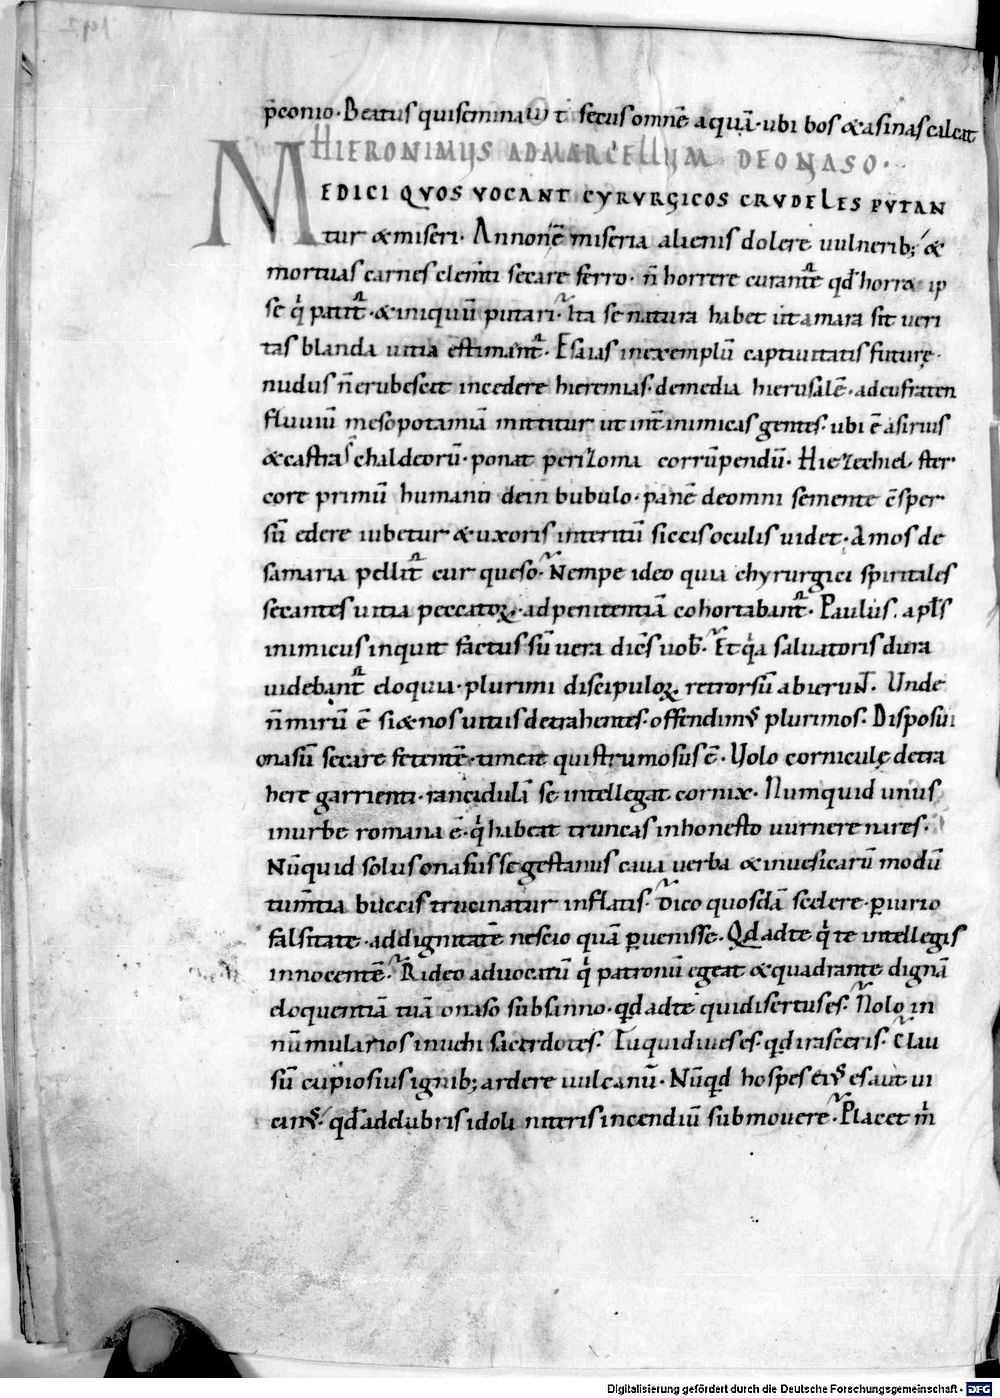 p̄conio. Beatus qui seminat secus omnē aquā. ubi bos & asinus calcat
HIERONIMUS AD MARCELLUM DE ONASO.
MEDICI QVOS VOCANT CYRVRGICOS CRVDELES PVTAN
tur & miseri. An non ē miseria alienis dolere uulnerib; &
mortuas carnes clem̄ti secare ferro. n̄ horrere curantē qd̄ horr& ip
se q̇ patit᷑. & iniquū putari. Ita se natura habet ut amara sit ueri
tas blanda uitia estimant᷑. Esaias in exemplū captiuitatis futurę.
nudus n̄ erubescit incedere hieremias. de media hierusalē. ad eufraten
fluuiū mesopotamiā mittitur ut int̄ inimicas gentes. ubi ē asirius
& castra chaldeorū. ponat perizoma corrūpendū. Hiezechiel ster
core primū humano dein bubulo. panē de omni semente ēsper
sū edere iubetur & uxoris interitū siccis oculis uidet. Amos de
samaria pellit᷑ cur queso. Nempe ideo quia chyrurgici spiritales
secantes uitia peccatoꝝ. ad penitentiā cohortabant᷑. Paulus. apl̄s
inimicus inquit factus sū uera dicēs uob̄. Et q̇a saluatoris dura
uidebant᷑ eloquia. plurimi discipuloꝝ retrorsū abierunt. Unde
n̄ mirū ē si & nos uitiis detrahentes. offendim᷒ plurimos. Disposui
onasū secare fetentē. timeat qui strumosus ē. Uolo corniculę detra
here garrienti. rancidulā se intellegat cornix. Numquid unus
in urbe romana ē. q̇ habeat truncas inhonesto uurnere nares.
Nūquid solus onasus segestanus caua uerba & in uesicarū modū
tum̄tia buccis trucinatur inflatis. Dico quosdā scelere. ꝑiurio
falsitate. ad dignitatē nescio quā ꝑuenisse. Qd̄ ad te q̇ te intellegis
innocentē. Rideo aduocatū q̇ patronū egeat & quadrante dignā
eloquentiā tuā onaso subsanno. qd̄ ad te qui disertus es. Nolo in
nūmularios inuehi sacerdotes. Tu quid iues es. qd̄ irasceris. Clau
sū cupio suis ignib; ardere uulcanū. Nūqd̄ hospes ei᷒ es aut ui
cin᷒. qd̄ a delubris idoli niteris incendiū submouere. Placet m̄
Digitalisierung gefördert durch die Deutsche Forschungsgemeinschaft - DFG